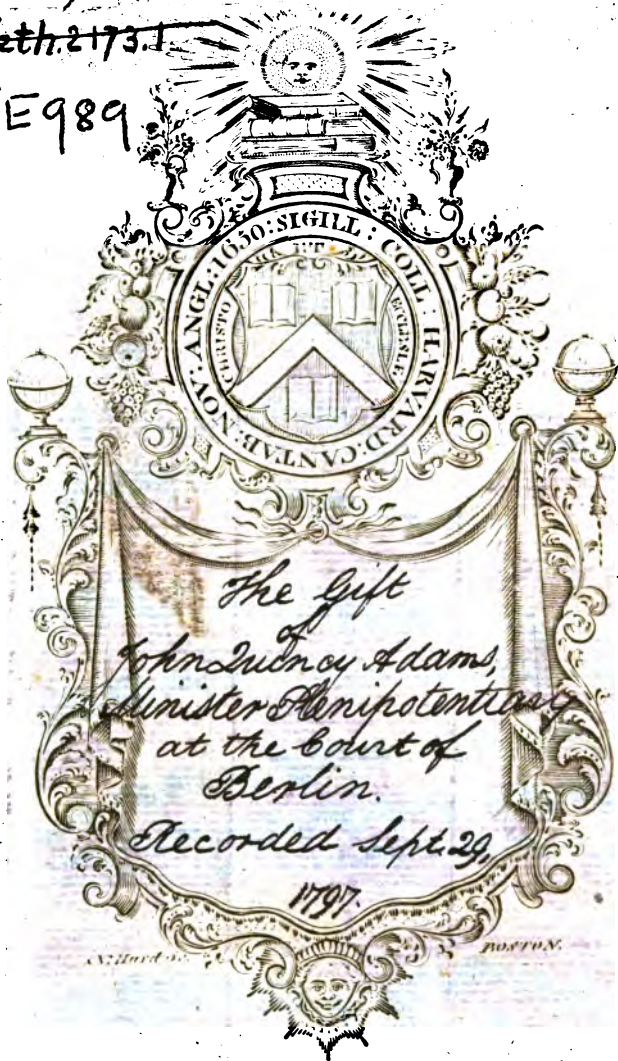 E989
SIGILL : COLL : HARVARD : CANTAB : NOV : ANGL : 1650 :
CHRISTO ET ECCLESIÆ
The Gift
of
John Quincy Adams,
Minister Plenipotentiary
at the Court of
Berlin.
Recorded Sept. 29,
1797.
BOSTON.